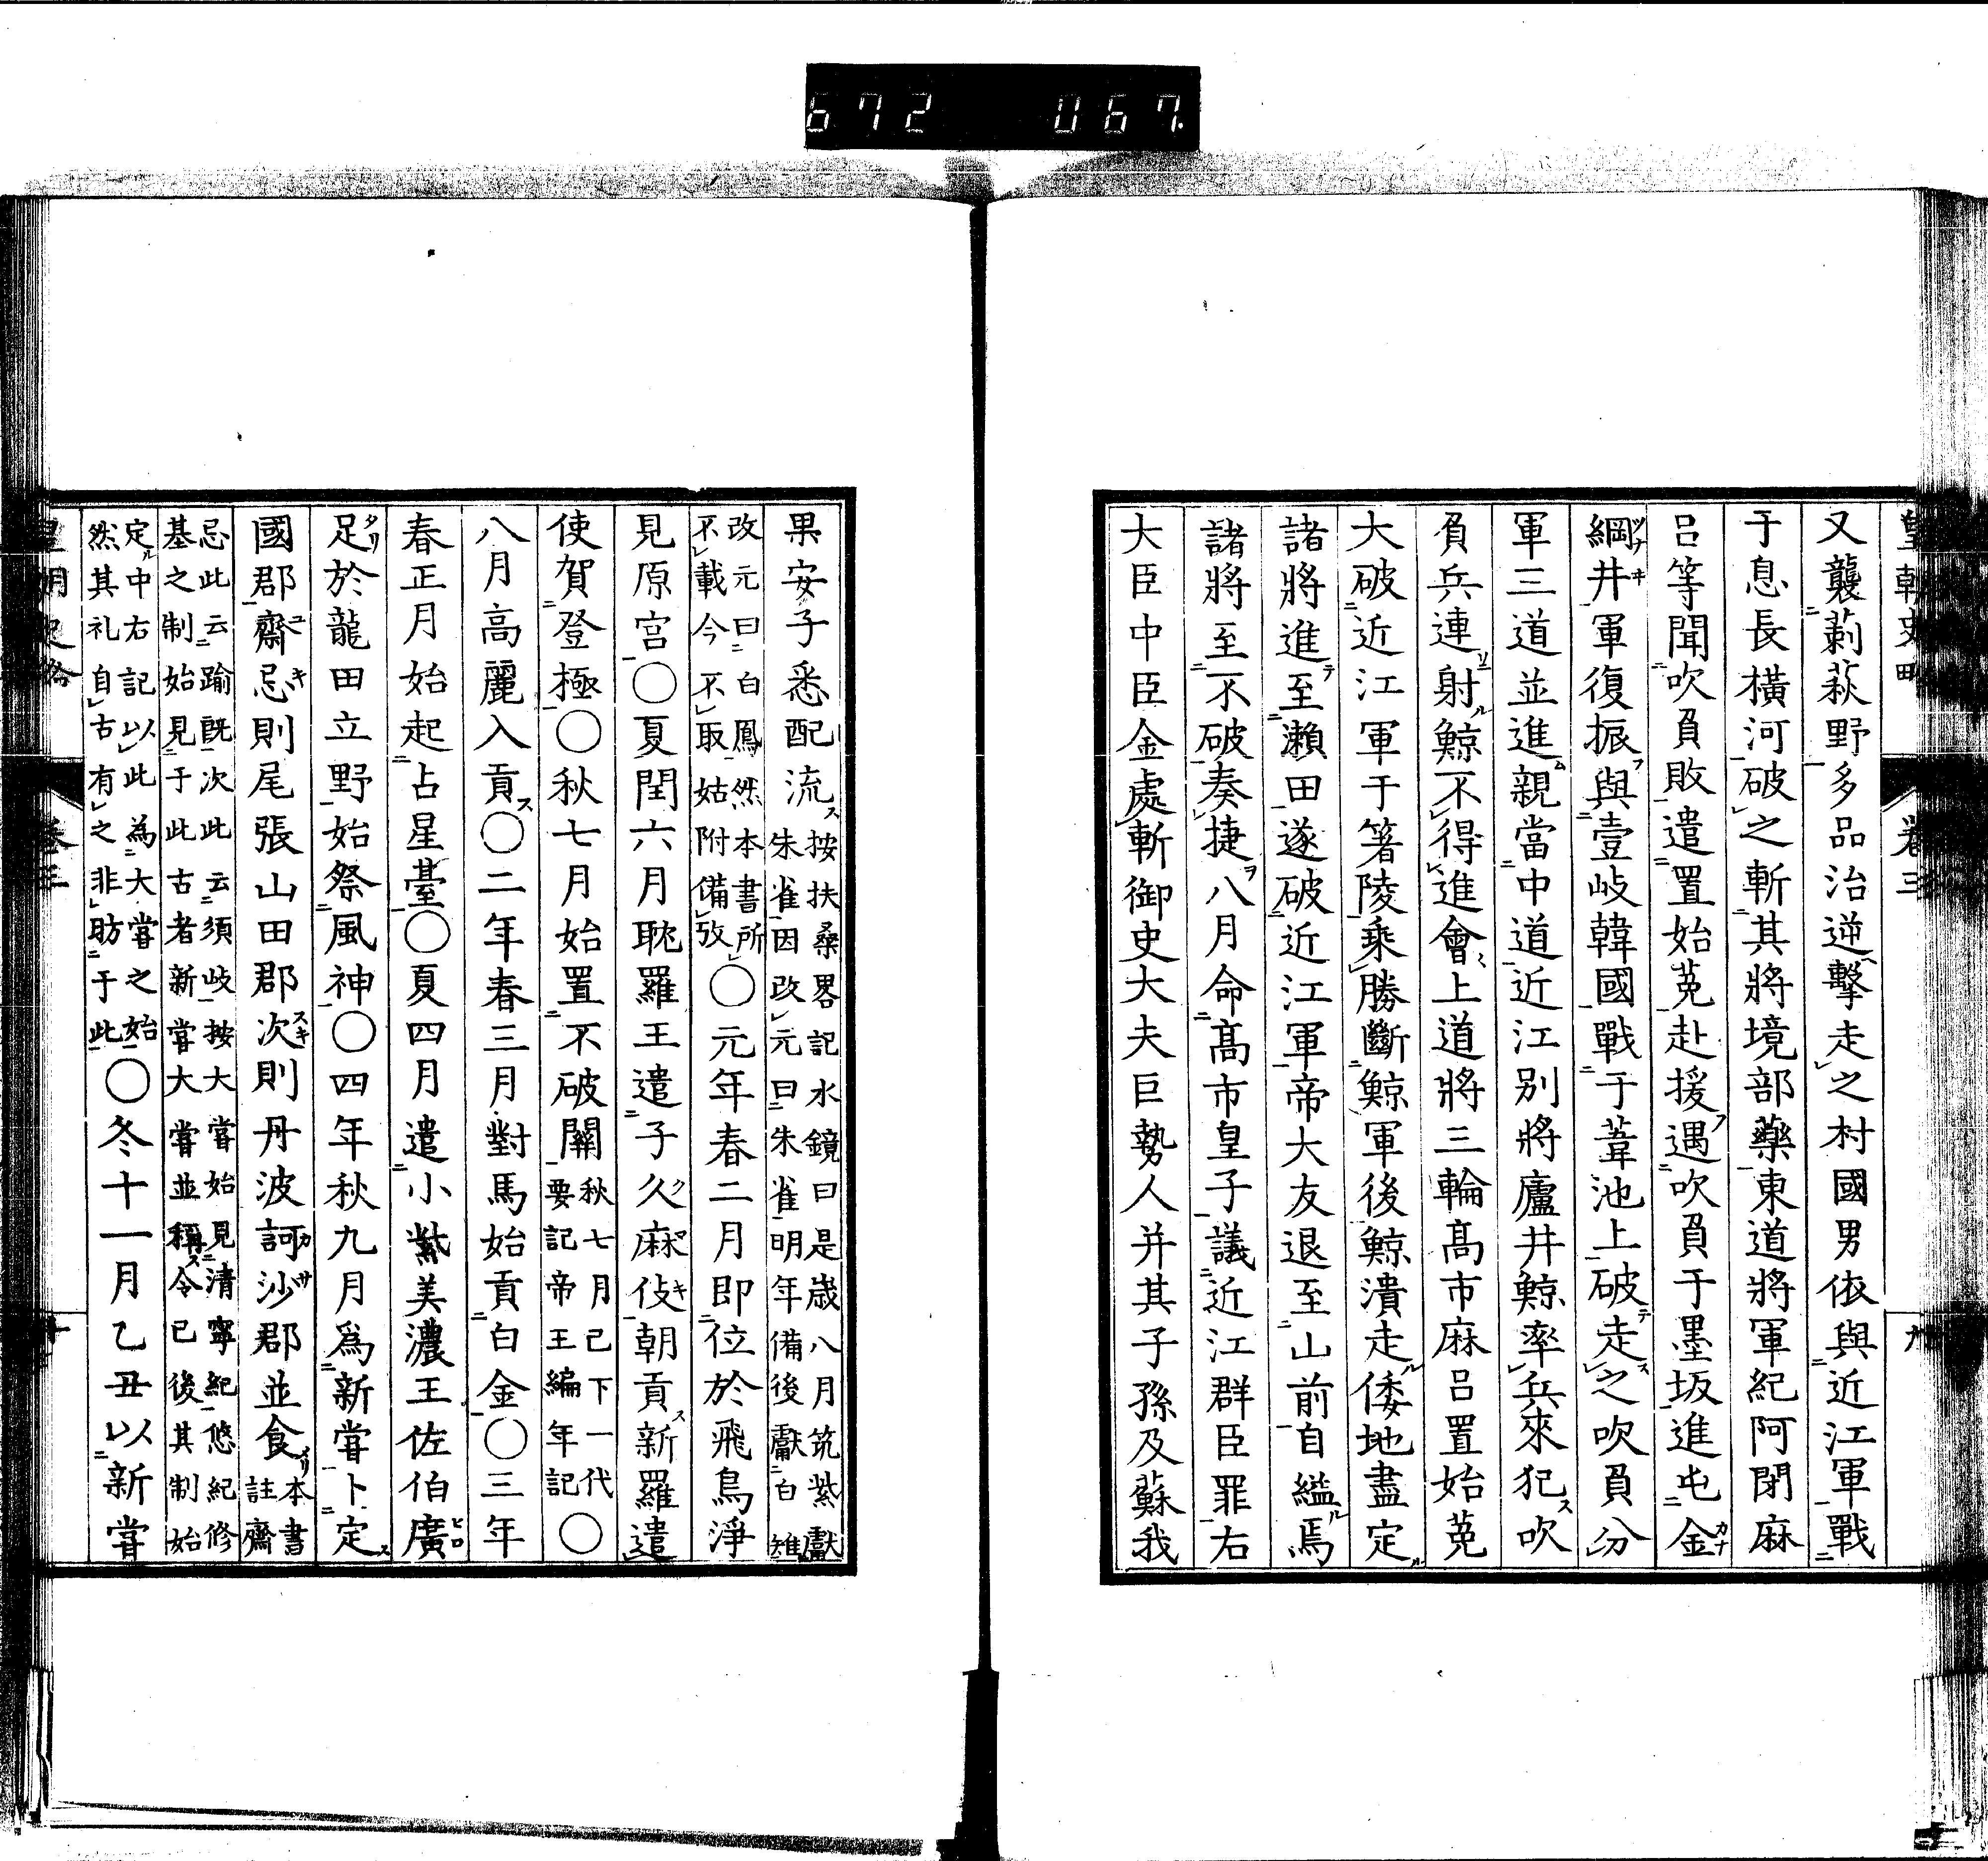 672 067.
皇朝史略 卷三 九
又襲莿萩野多品治逆擊走之村國男依與近江軍戰
于息長橫河破之斬其將境部藥東道將軍紀阿閉麻
呂等聞吹負敗遣置始菟赴援遇吹負于墨坂進屯金
綱井軍復振與壹岐韓國戰于葦池上破走之吹負分
軍三道並進親當中道近江别將廬井鯨率兵來犯吹
負兵連射鯨不得進會上道將三輪髙市麻呂置始菟
大破近江軍于箸陵乘勝斷鯨軍後鯨潰走倭地盡定
諸將進至瀨田遂破近江軍帝大友退至山前自縊焉
諸將至不破奏捷八月命髙市皇子議近江群臣罪右
大臣中臣金處斬御史大夫巨勢人并其子孫及蘇我
果安子悉配流按扶桑畧記水鏡曰是歲八月筑紫獻朱雀因改元曰朱雀明年備後獻白雉
改元曰白鳳然本書所不載今不取姑附備攷〇元年春二月即位於飛鳥淨
見原宮〇夏閏六月耽羅王遣子久麻伎朝貢新羅遣
使賀登極〇秋七月始置不破關秋七月己下一代要記帝王編年記〇
八月高麗入貢〇二年春三月對馬始貢白金〇三年
春正月始起占星臺〇夏四月遣小紫美濃王佐伯廣
足於龍田立野始祭風神〇四年秋九月爲新嘗卜定
國郡齋忌則尾張山田郡次則丹波訶沙郡並食本書註齋
忌此云踰既次此云須岐按大嘗始見清寧紀悠紀修基之制始見于此古者新嘗大嘗並稱令已後其制始
定中右記以此為大嘗之始然其礼自古有之非昉于此〇冬十一月乙丑以新嘗
皇朝史略 卷三 十